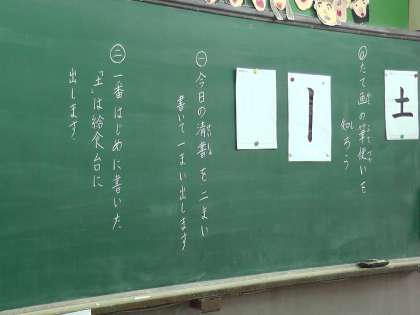 土
めたて画の筆使いを
知ろう
一今日の清書を二まい
書いて一まい出します
二一番はじめに書いた
「土」は給食台に
出します。